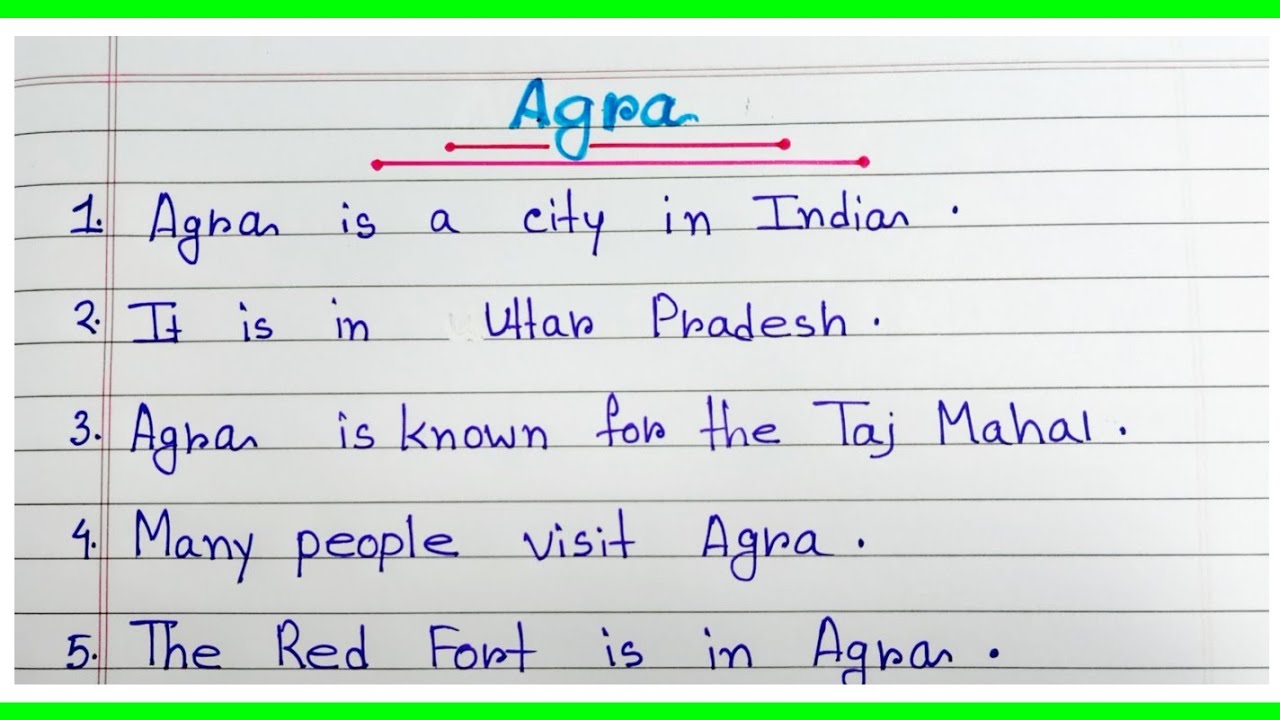 Agra
1. Agra is a city in India.
2. It is in Uttar Pradesh.
3. Agra is known for the Taj Mahal.
4. Many people visit Agra.
5. The Red Fort is in Agra.